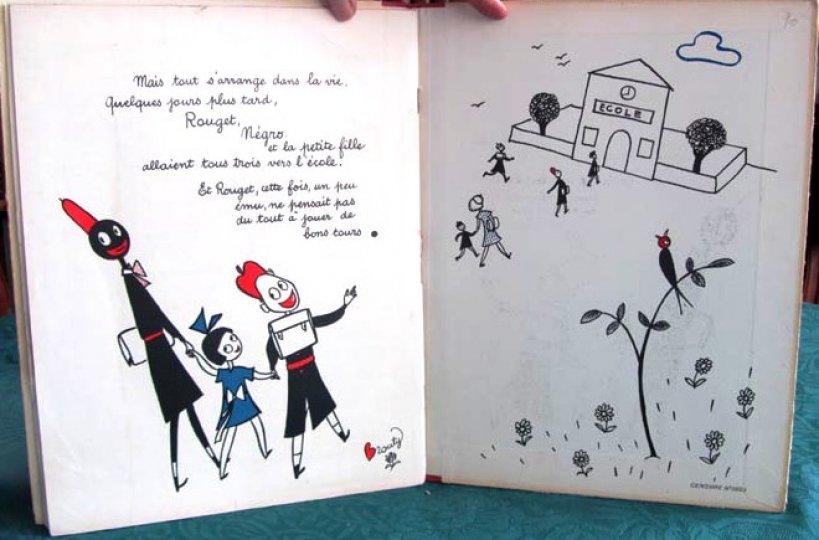 Mais tout s'arrange dans la vie.
Quelques jours plus tard,
Rouget,
Négro
et la petite fille
allaient tous trois vers l'école.
Et Rouget, cette fois, un peu
ému, ne pensait pas
du tout à jouer de
bons tours.
ECOLE